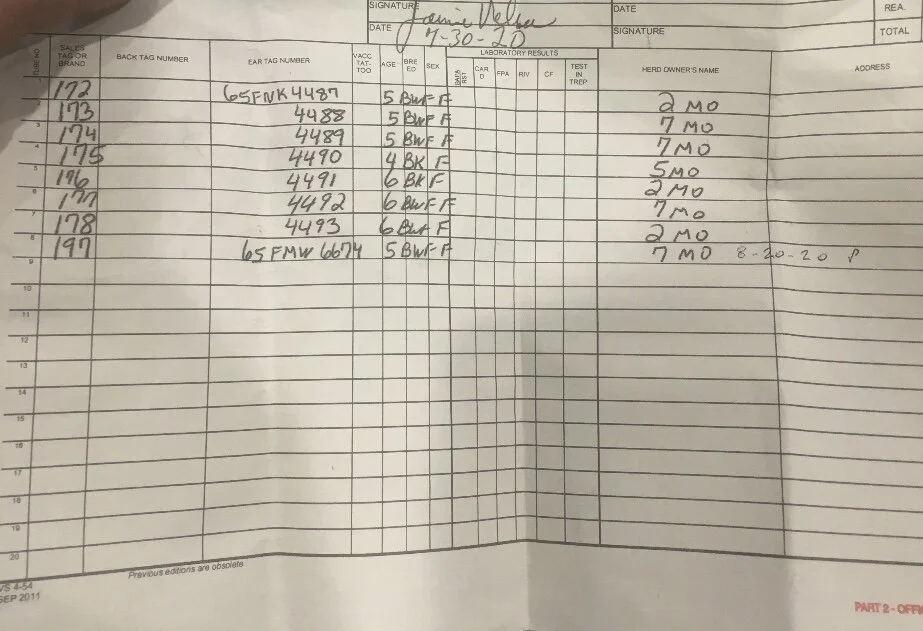 SIGNATURE
DATE 7-30-20
DATE
SIGNATURE
REA.
TOTAL
TUBE NO SALES TAG OR BRAND BACK TAG NUMBER EAR TAG NUMBER VACC TAT-TOO AGE BRE ED SEX LABORATORY RESULTS CAR D FPA RIV CF TEST IN TREP HERD OWNER'S NAME ADDRESS
1 172 65FNK4487 5 BWF F 2 MO
2 173 4488 5 BWF F 7 MO
3 174 4489 5 BWF F 7 MO
4 175 4490 4 BK F 5 MO
5 176 4491 6 BK F 2 MO
6 177 4492 6 BWF F 7 MO
7 178 4493 6 BWF F 2 MO
8 197 65FMW6674 5 BWF F 7 MO 8-20-20
9
10
11
12
13
14
15
16
17
18
19
20
Previous editions are obsolete
VS 4-54
SEP 2011
PART 2 - OFFI